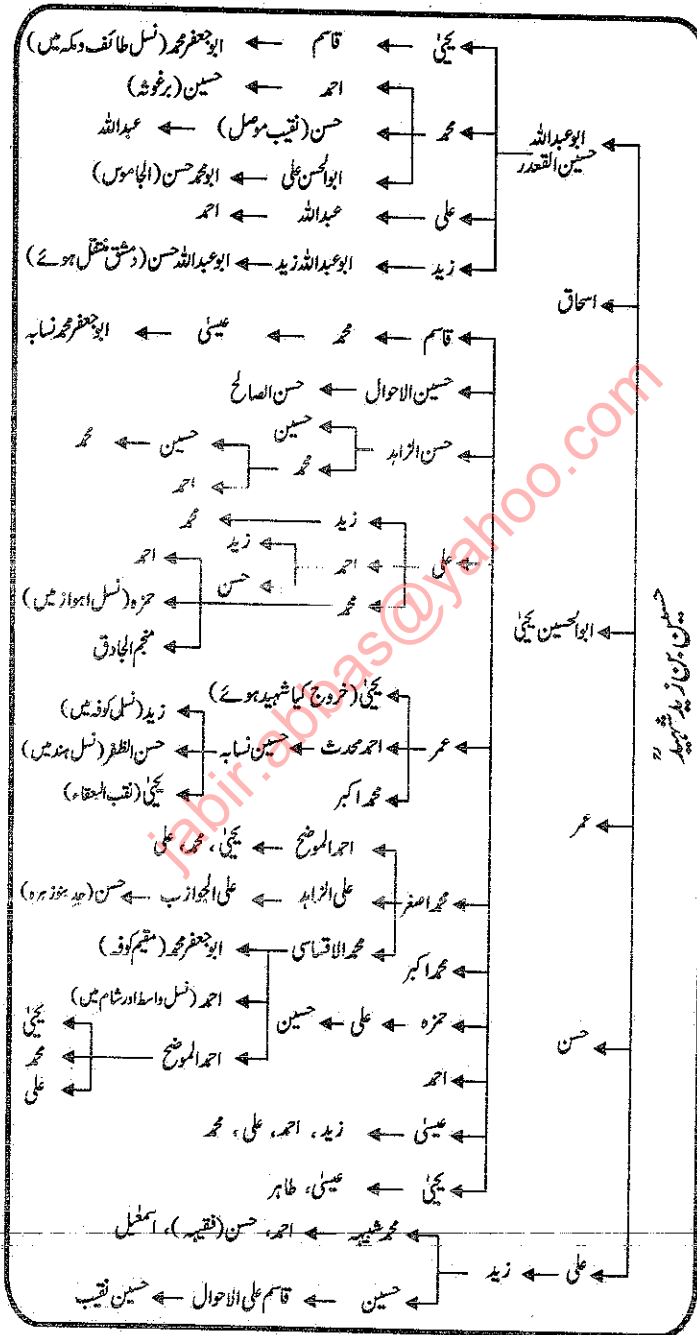 حسین بن زید شہیدؒ
ابو عبداللہ
حسین القعدر
یحییٰ ← قاسم ← ابو جعفر محمد (نسل طائف ومکہ میں)
محمد
احمد ← حسین (برغوثہ)
حسن (نقیب موصل) ← عبداللہ
ابوالحسن علی ← ابو محمد حسن (الجاموس)
علی ← عبداللہ ← احمد
زید ← ابو عبداللہ زید ← ابو عبداللہ حسن (دمشق منتقل ہوئے)
اسحاق
ابوالحسین یحییٰ
قاسم ← محمد ← عیسیٰ ← ابو جعفر محمد نسابہ
حسین الاحوال ← حسن الصالح
حسن الزاہد
حسین
محمد
حسین ← محمد
احمد
علی
زید ← محمد
احمد
زید
حسن
محمد
احمد
حمزہ (نسل اہواز میں)
منجم الجاذق
عمر
یحییٰ (خروج کیا شہید ہوئے)
احمد محدث ← حسین نسابہ
زید (نسل کوفہ میں)
حسن الظفر (نسل ہند میں)
یحییٰ (نقب البقاء)
محمد اکبر
محمد اصغر
احمد الموضح ← یحییٰ، محمد، علی
علی الزاہد ← علی الجوازب ← حسن (جد بنو زہرہ)
محمد الاقساسی
ابو جعفر محمد (مقیم کوفہ)
احمد (نسل واسط اور شام میں)
احمد الموضح
یحییٰ
محمد
علی
محمد اکبر
حمزہ ← علی ← حسین
احمد
عیسیٰ ← زید، احمد، علی، محمد
یحییٰ ← عیسیٰ، طاہر
عمر
حسن
علی ← زید
محمد شبیہہ ← احمد، حسن (فقیہہ)، اسمٰعیل
حسین ← قاسم علی الاحوال ← حسین نقیب
jabir.abbas@yahoo.com